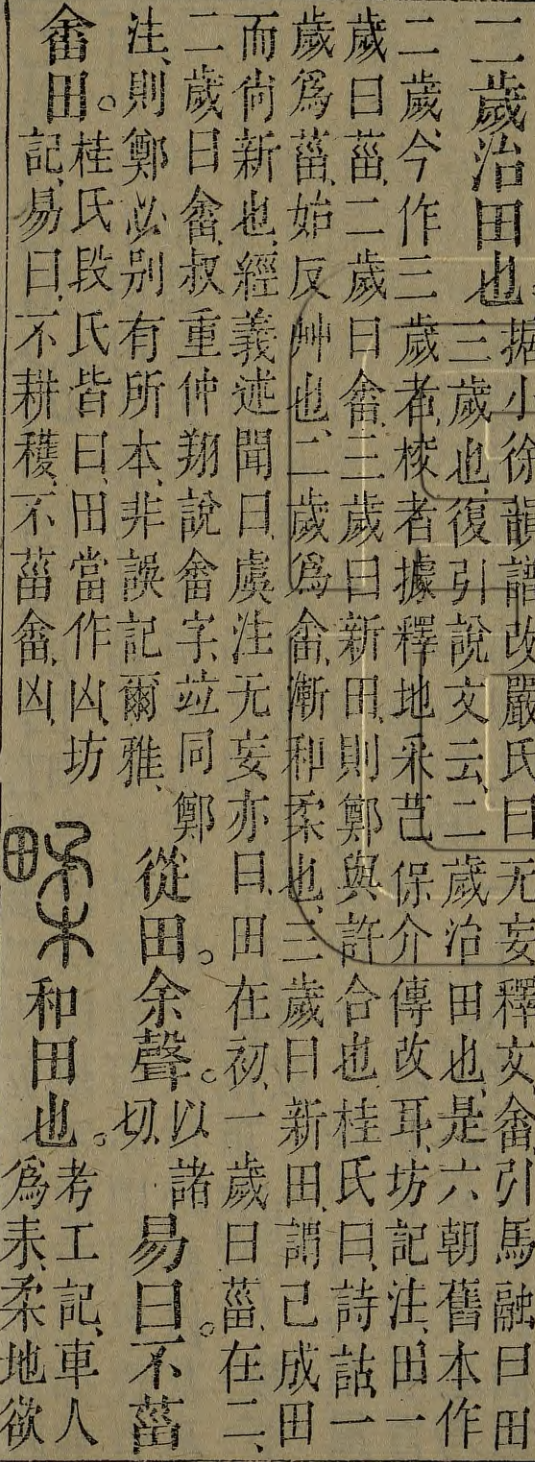 二歲治田也
据小徐韻譜改嚴氏曰无妄釋文畬引馬融曰田
三歲也、復引說文云、二歲治田也、是六朝舊本作
二歲、今作三歲者、校者據釋地采芑保介傳改耳、坊記注、田一
歲曰菑、二歲曰畬、三歲曰新田、則鄭與許合也、桂氏曰、詩詁一
歲爲菑、始反艸也、二歲爲畬、漸和柔也、三歲曰新田、謂已成田
而尙新也、經義述聞曰、虞注无妄亦曰、田在初、一歲曰菑、在二、
二歲曰畬、叔重仲翔說畬字、竝同鄭
注、則鄭必別有所本、非誤記爾雅、
從田。余聲。
以諸
切
易曰。不菑
畬田。
桂氏段氏皆曰、田當作凶、坊
記、易曰、不耕穫、不菑畬、凶、
㽥和田也。
考工記、車人
爲耒、柔地欲